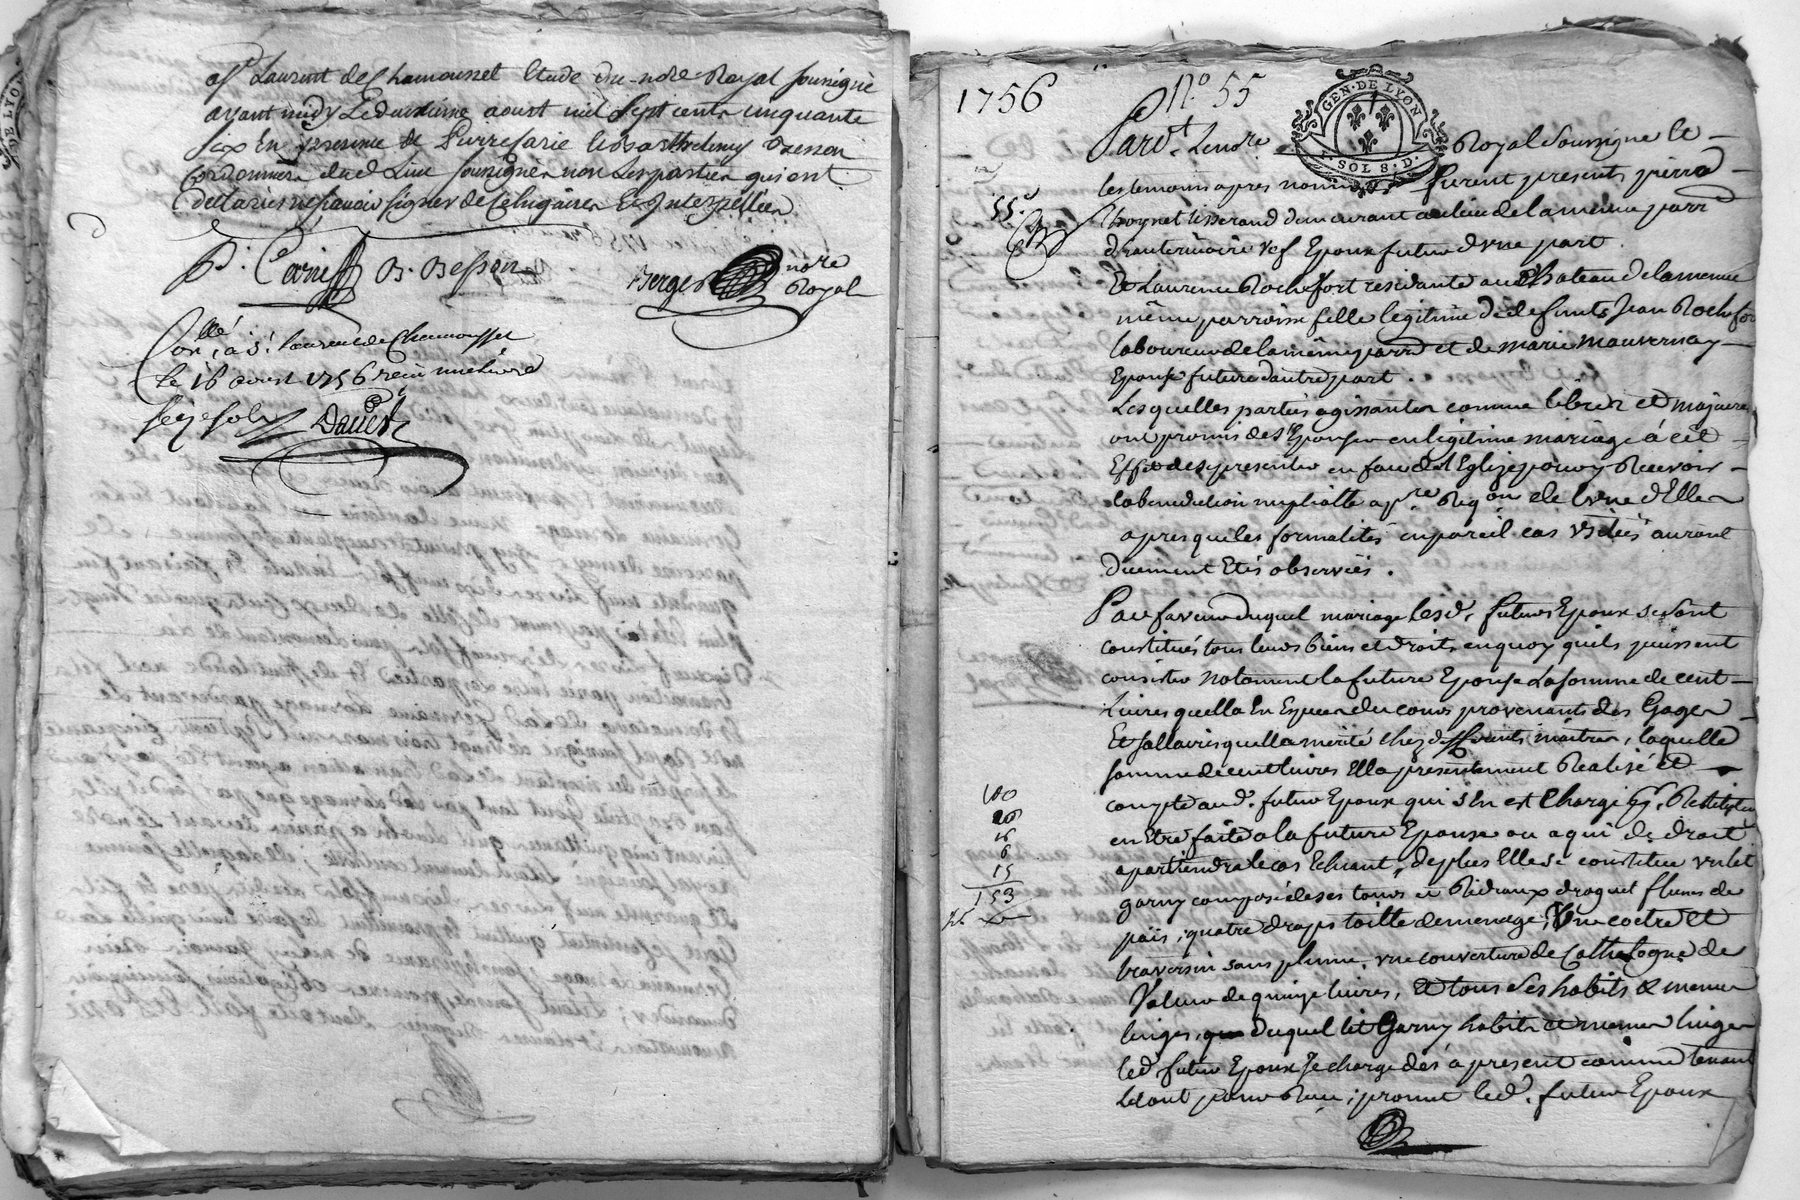 a St Laurent de Chamousset Etude du notre Royal soussigné
avant midy Le deuxieme aoust mil sept cents cinquante
six En presence de Pierre
Cordonniers dud. Lieu soussignés non Les parties qui ont
declarés ne scavoir signer de Ce Enquises Et Interpellées
P. B. Besson
Berger notre
Royal
Conllé à St Laurent de Chamousset
le 16 aoust 1756 reçu
1756
No 55
GEN. DE LYON
SOL 8. D.
Pardt. Le notre Royal Soussigné et
les temoins apres nommés furent presents pierre
55e
Choynet tisserand demeurant au lieu de la meme parr
d'hauterivoire vef Epoux futur d'une part
Et Laurence Rochefort residante au Chateau de la meme
même parroisse fille legitime de defunts Jean Rochefor
laboureur de la même parr et de marie mauvernay
Epouse future d'autre part.
Lesquelles parties agissantes comme libres et majeures
ont promis de s'Epouser en legitime mariage à cet
Effet de se presenter en face de l'Eglize pour y Recevoir
la benediction nuptialle apre Reqon de l'une d'Elles
apres que les formalités en pareil cas usitées auront
duement Etés observées.
En faveur duquel mariage lesd. futurs Epoux se sont
constitués tous leurs biens et droits en quoy quils puissent
consister notament la future Epouse La somme de cent
Livres quella En Especes du cours provenants des Gages
Et sallaires quella merité chez differents maitres, laquelle
somme de cent livres Ella presentement Realisé et
compté aud. futur Epoux qui s'En est Chargé pr. Restitution
100
20
en Etre faite a la future Epouse ou a qui de droit
16
6
apartiendra le cas Echeant, de plus Elle se constitue un lit
15
153
garny composé de ses tours et Rideaux droguet fleuret de
païs, quatre draps toille de menage, Une coetre et
traversin sans plume, une couverture de Cathelogne de
Valeur de quinze livres, Et tous ses habits & menus
linges, duquel lit Garny habits et menus linges
led futur Epoux se charge dès a present comme tenant
le tout pour Reçu, promet led. futur Epoux